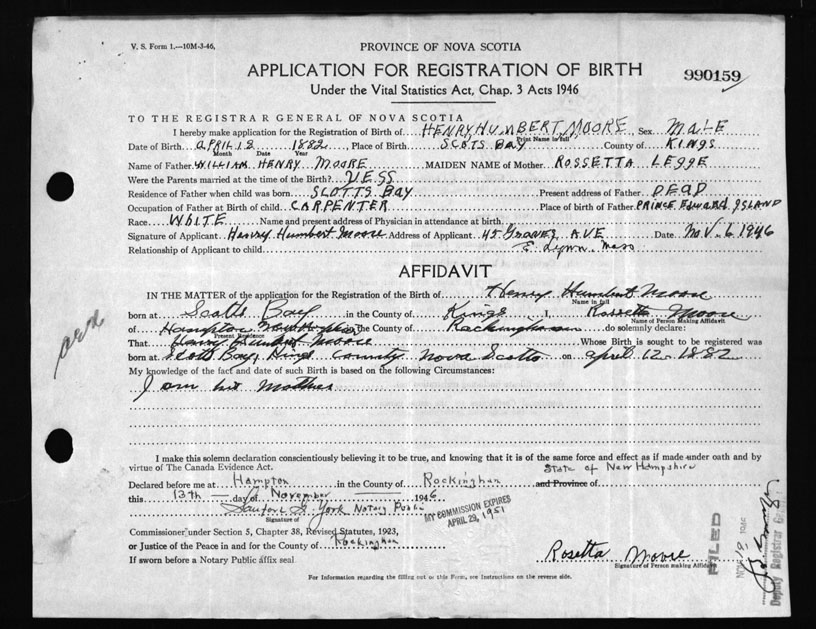 V. S. Form 1.—10M-3-46,
PROVINCE OF NOVA SCOTIA
APPLICATION FOR REGISTRATION OF BIRTH
990159
Under the Vital Statistics Act, Chap. 3 Acts 1946
TO THE REGISTRAR GENERAL OF NOVA SCOTIA
I hereby make application for the Registration of Birth of HENRY HUMBERT MOORE, Sex MALE
Print Name in full
Date of Birth APRIL 12 1882, Place of Birth SCOTS BAY County of KINGS
Month Date Year
Name of Father WILLIAM HENRY MOORE MAIDEN NAME of Mother ROSSETTA LEGGE
Were the Parents married at the time of Birth? YESS
Residence of Father when child was born SCOTTS BAY Present address of Father DEAD
Occupation of Father at Birth of child CARPENTER Place of birth of Father PRINCE EDWARD ISLAND
Race WHITE Name and present address of Physician in attendance at birth
Signature of Applicant Henry Humbert Moore Address of Applicant 45 AVE Date Nov. 6 1946
Relationship of Applicant to child E. Lynn Mass
AFFIDAVIT
IN THE MATTER of the application for the Registration of Birth of Henry Humbert Moore
Name in full
born at Scotts Bay in the County of Kings I, Rossetta Moore
Name of Person Making Affidavit
of Hampton New Hampshire the County of Rockingham do solemnly declare:
Present Residence
That Henry Humbert Moore Whose Birth is sought to be registered was
born at Scott Bay, Kings County Nova Scotia on april 12 1882
My knowledge of the fact and date of such Birth is based on the following Circumstances:
I am his Mother
I make this solemn declaration conscientiously believing it to be true, and knowing that it is of the same force and effect as if made under oath and by
virtue of The Canada Evidence Act.
State of New Hampshire
Declared before me at Hampton in the County of Rockingham and Province of
this 13th day of November 1946
Sanford S. York Notary Public
Signature of
MY COMMISSION EXPIRES
APRIL 29, 1951
Commissioner under Section 5, Chapter 38, Revised Statutes, 1923,
or Justice of the Peace in and for the County of Rockingham
If sworn before a Notary Public affix seal.
Rosetta Moore
Signature of Person making Affidavit
For Information regarding the filling out of this Form, see Instructions on the reverse side.
FILED
Deputy Registrar